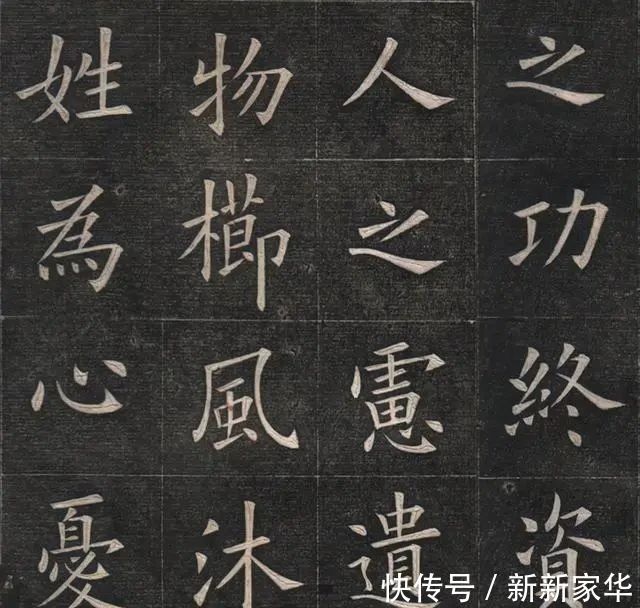 之功終資
人之慮遺
物櫛風沐
姓為心憂
快传号 / 新新家华